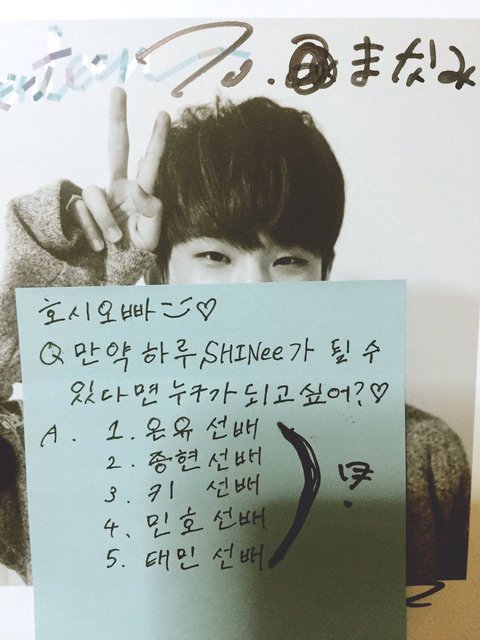 To. まなみ
호시오빠 ♡
Q 만약 하루, SHINee가 될 수
있다면 누구가 되고 싶어?♡
A. 1. 온유 선배
2. 종현 선배
3. 키 선배
4. 민호 선배
5. 태민 선배